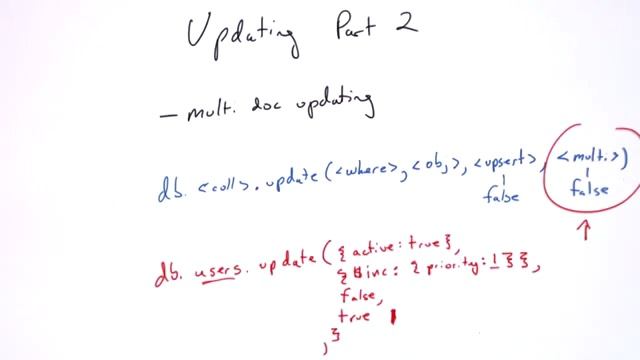 Updating Part 2
- mult. doc updating
db. <coll>. update (<where>, <obj>, <upsert>, <mult.>)
false false
db. users. update ( { active: true },
{ $inc: { priority: 1 } },
false,
true
, }